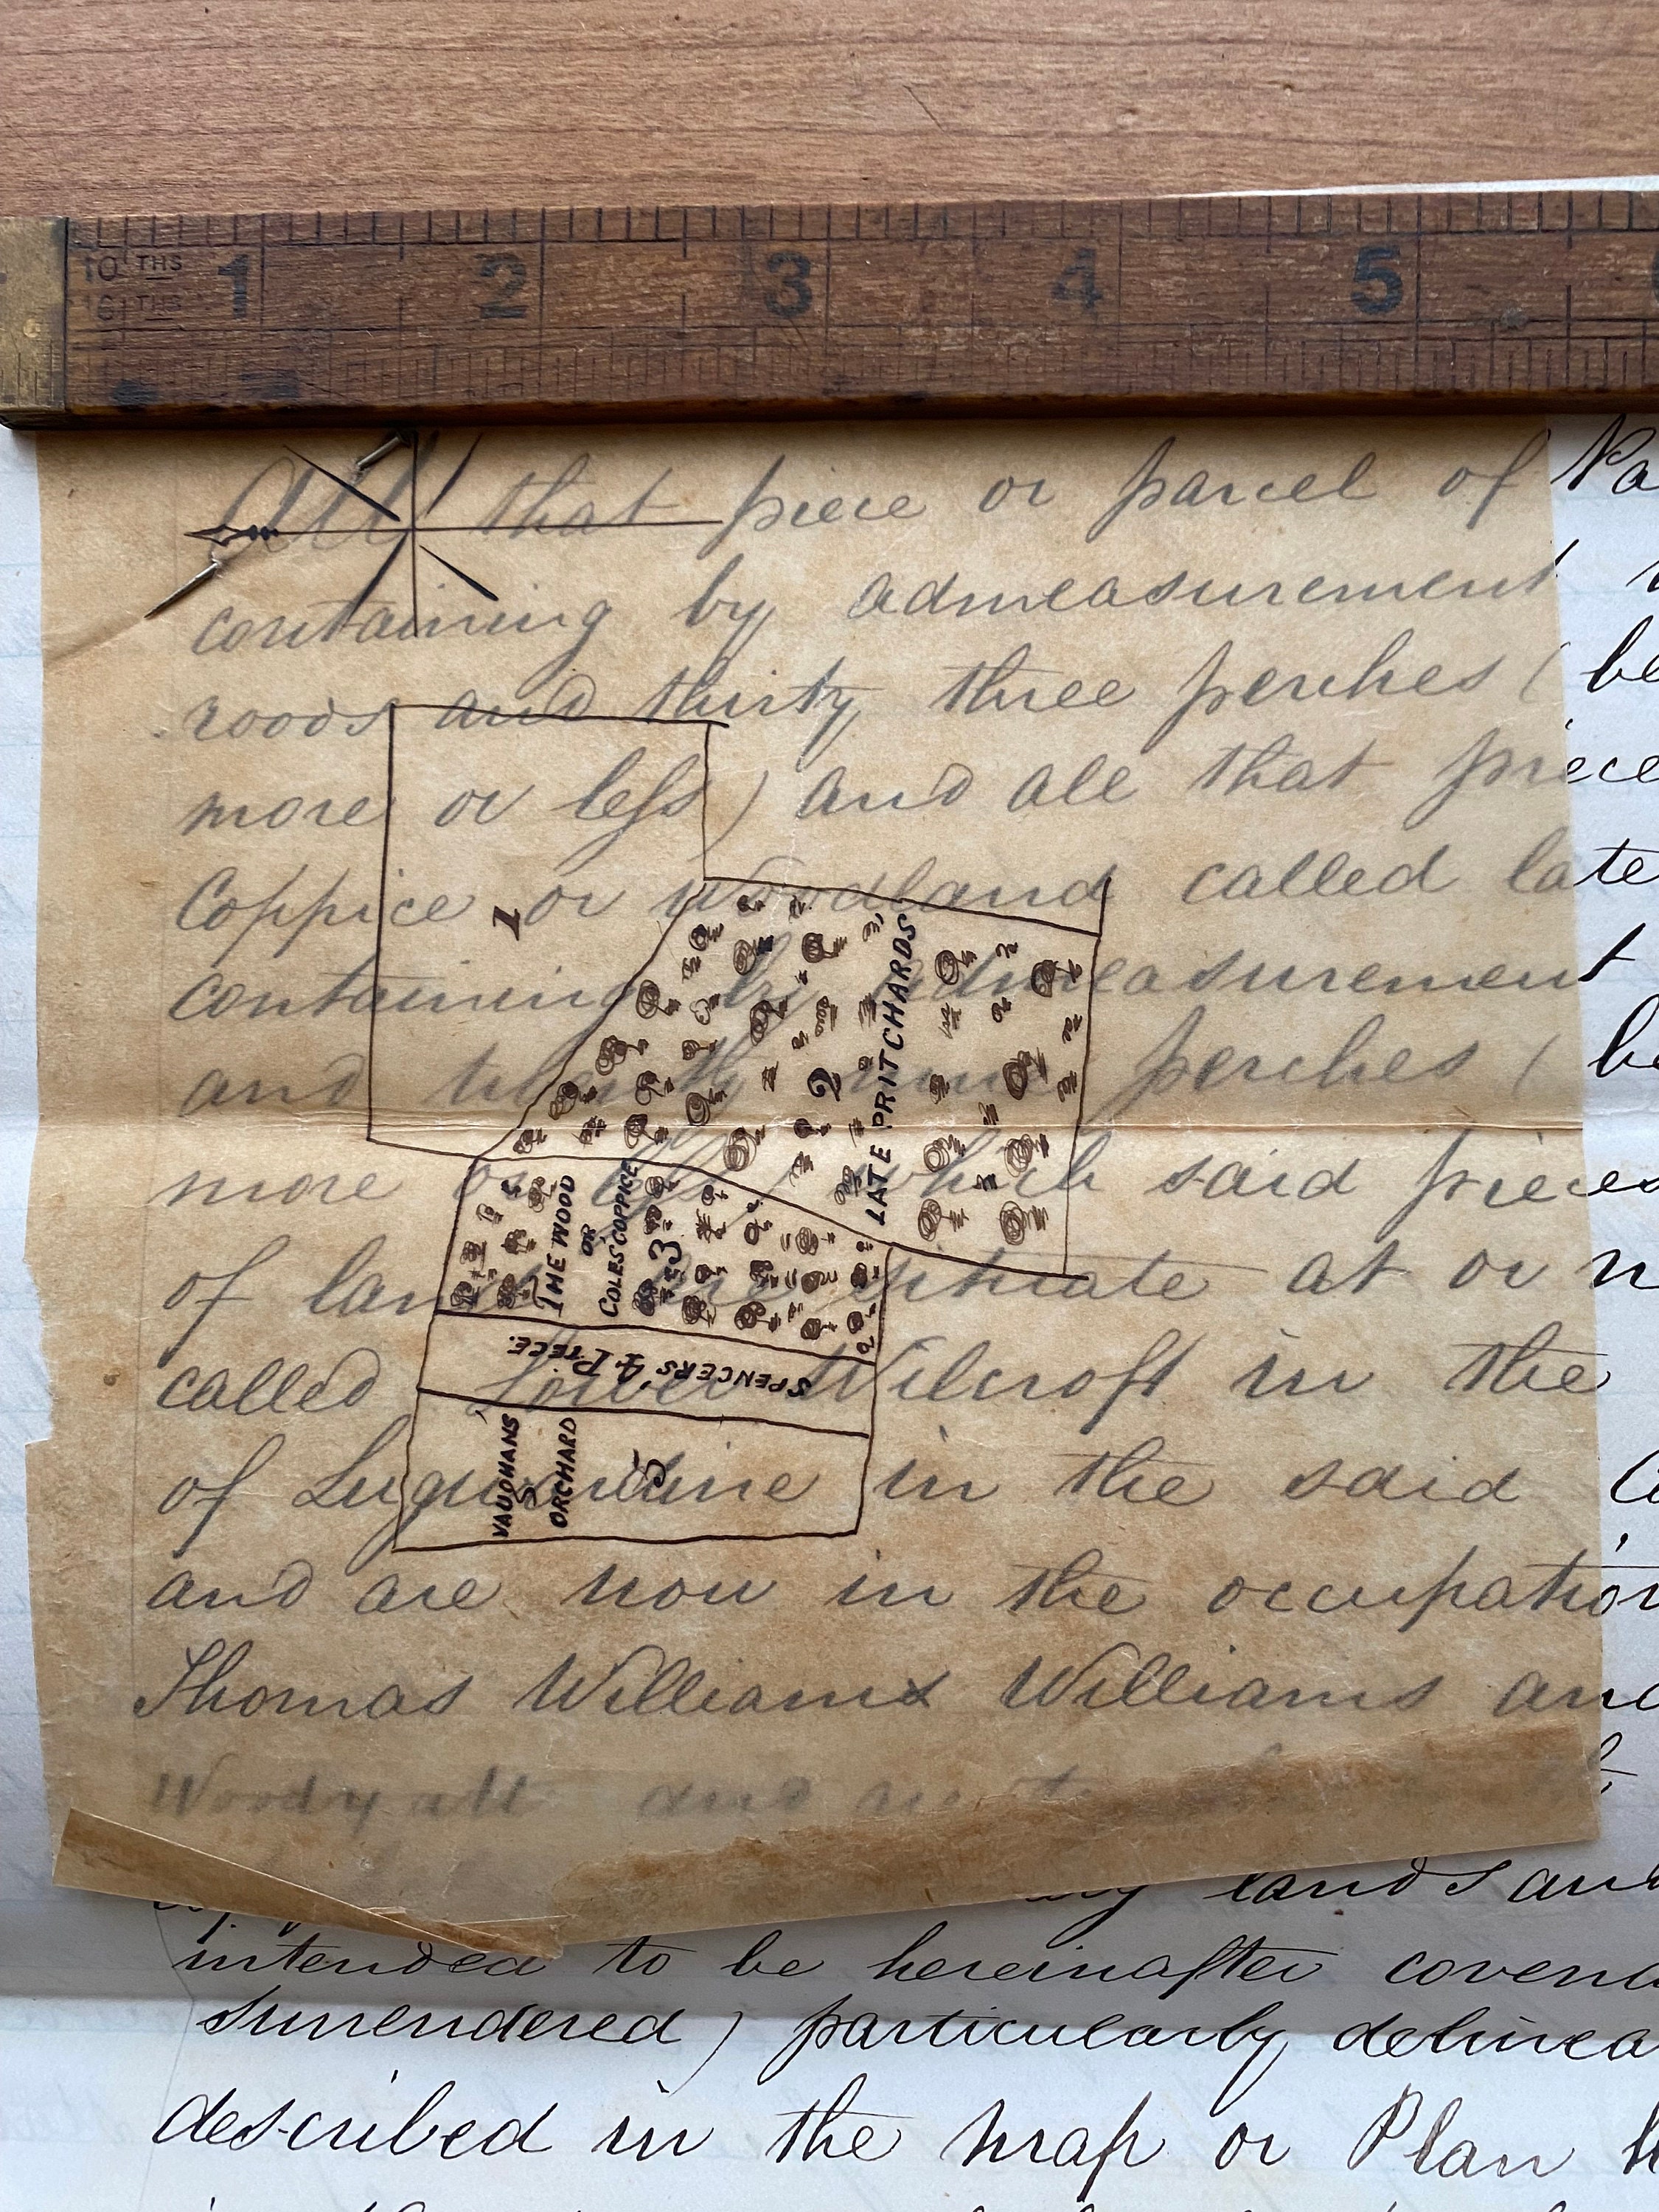 10 THS
16 THS
1 2 3 4 5
All that piece or parcel of Pa
containing by admeasurement
roods and thirty three perches ( be
more or less ) and all that piece
Coppice or Woodland called late
containing by admeasurement
and perches ( be
more or less which said pieces
of land are situate at or n
called Lower Wilcroft in the
of Lugwardine in the said
and are now in the occupation
Thomas Williams Williams and
Woodyatt and
lands and
intended to be hereinafter covena
surrendered ) particularly delinea
described in the Map or Plan
1
2
LATE PRITCHARDS
THE WOOD
OR
COLES COPPICE
3
SPENCERS 4. PIECE.
VAUGHANS
ORCHARD
5